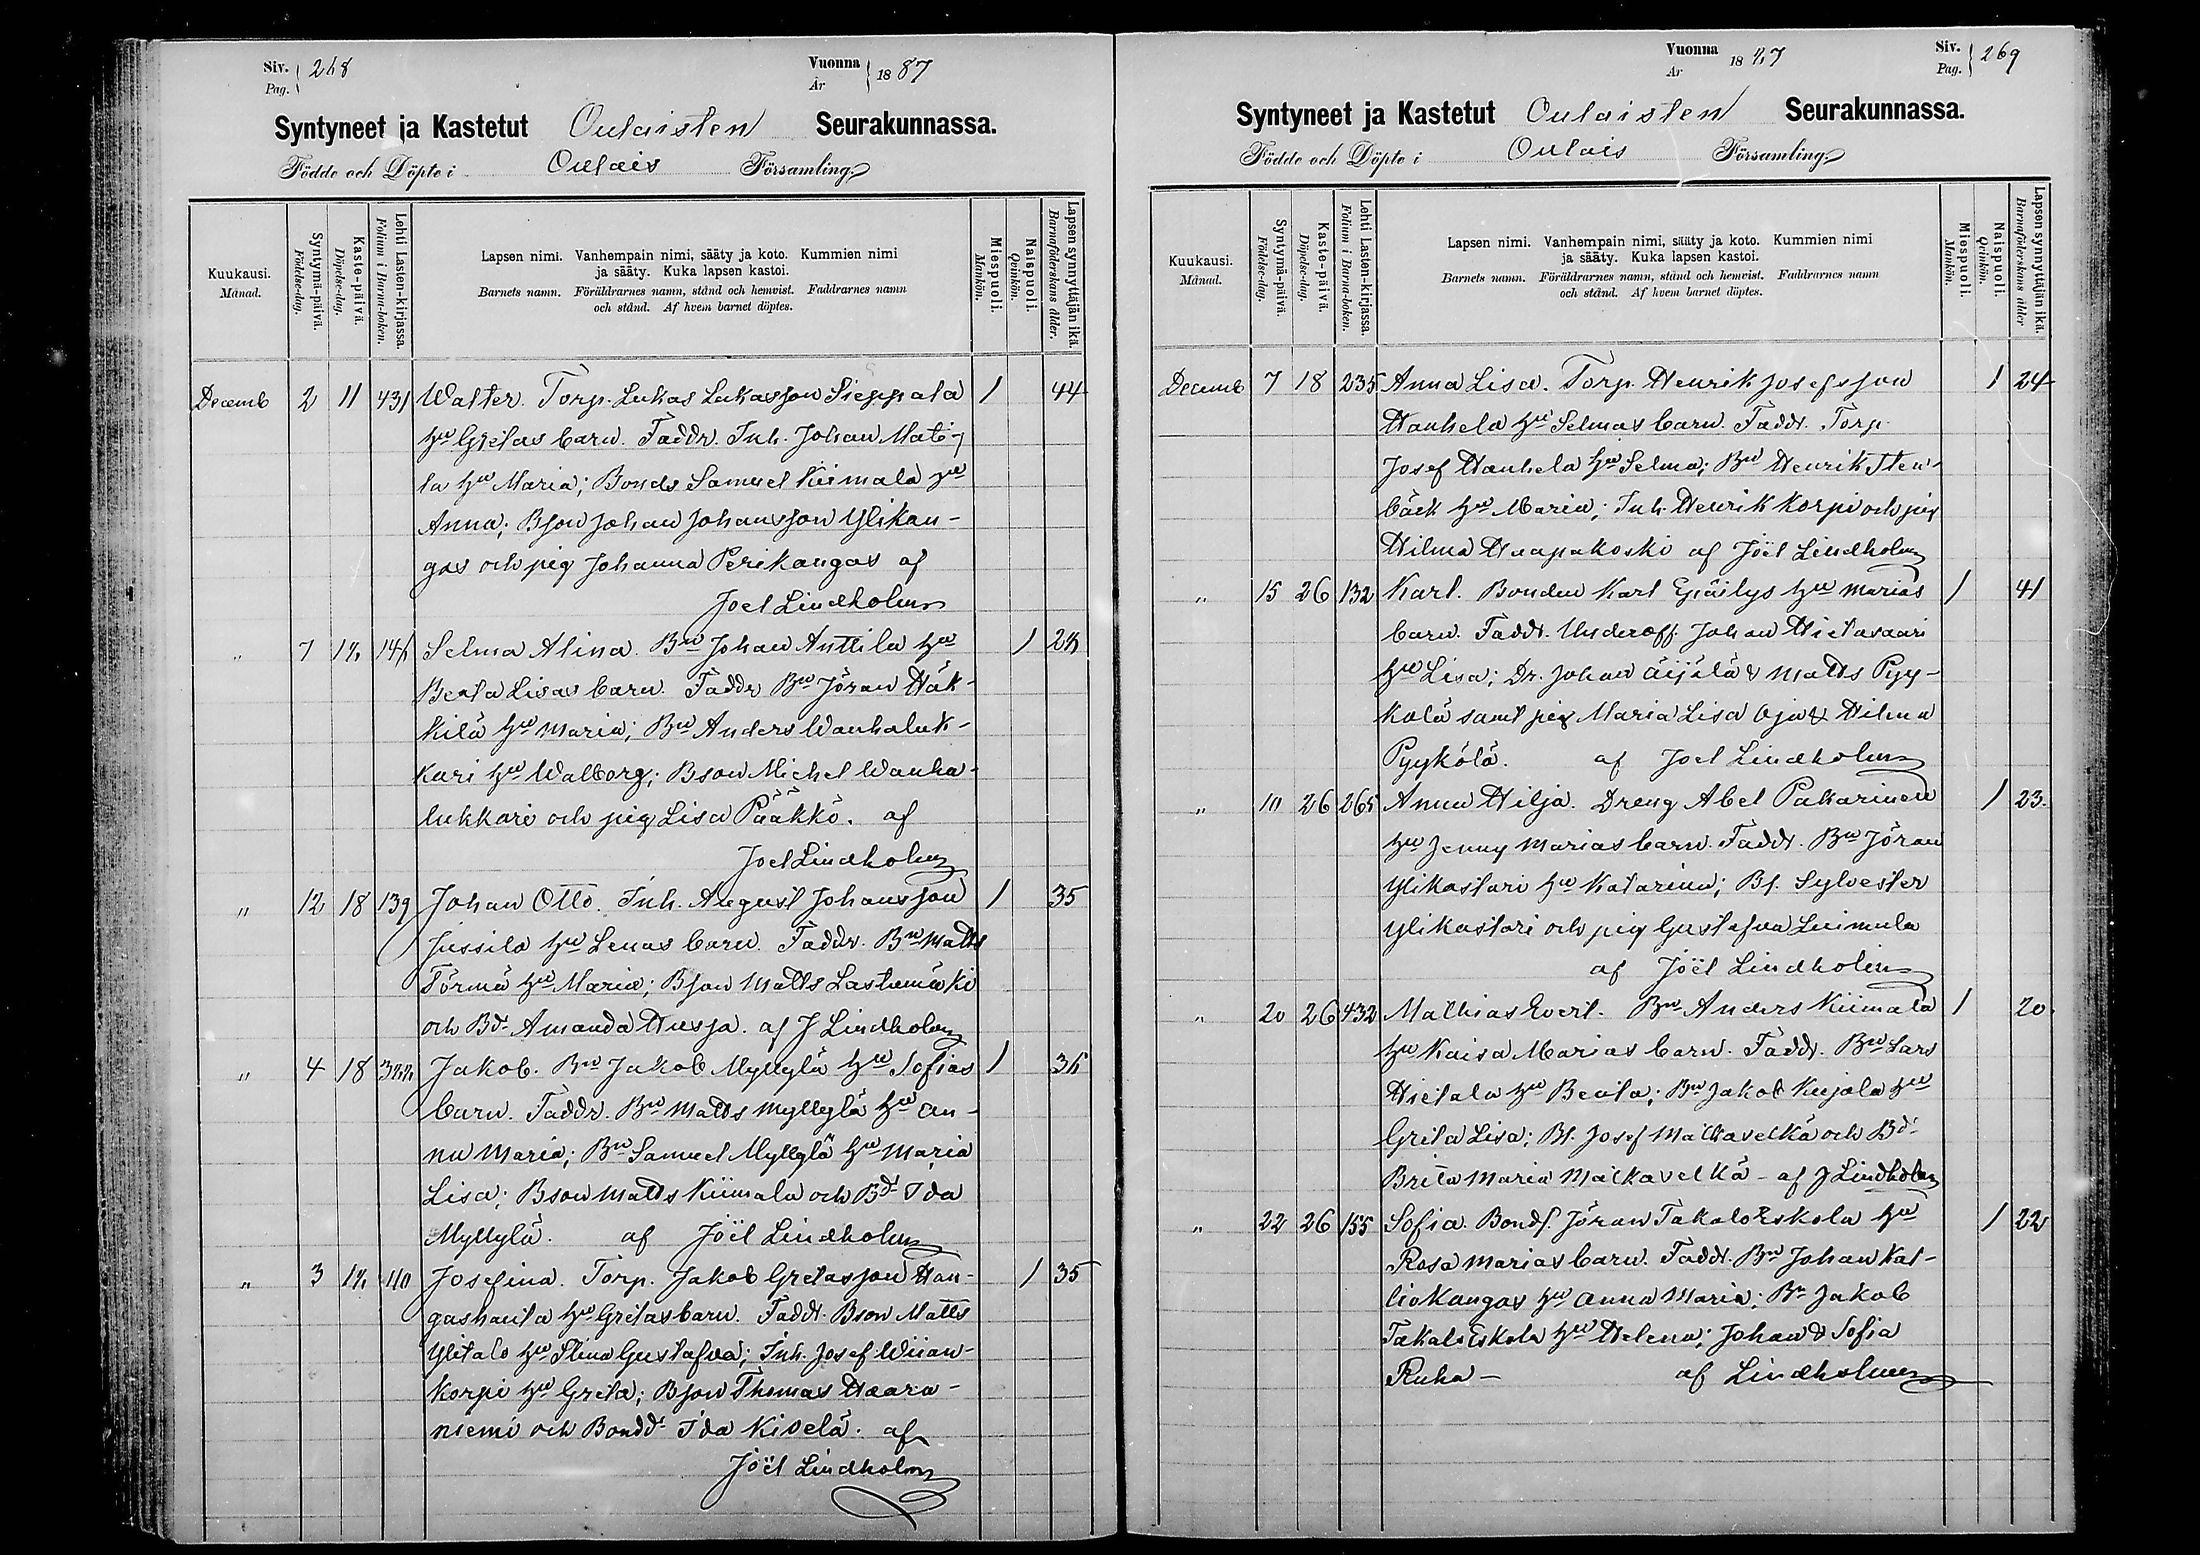 Siv. Pag. 268
Vuonna År 1887
Syntyneet ja Kastetut Oulaisten Seurakunnassa.
Födde och Döpte i Oulais Församling
Kuukausi. Månad.
Syntymä-päivä. Födelse-dag.
Kaste-päivä. Döpelse-dag.
Lehti Lasten-kirjassa. Folium i Barna-boken.
Lapsen nimi. Vanhempain nimi, sääty ja koto. Kummien nimi
ja sääty. Kuka lapsen kastoi.
Barnets namn. Föräldrarnes namn, stånd och hemvist. Faddrarnes namn
och stånd. Af hvem barnet döptes.
Miespuoli. Mankön.
Naispuoli. Qvinkön.
Lapsen synnyttäjän ikä. Barnaföderskans ålder.
Decemb 2 11 431 Walter. Torp. Lukas Lukasson Sieppala 1 44
hu Gretas barn. Faddr. Inh. Johan Mati-
la hu Maria; Bonds Samuel Kiimala hu
Anna; Bson Johan Johansson Ylikan-
gas och pig Johanna Perikangas af
Joel Lindholm
" 7 18 146 Selma Alina. Bn Johan Anttila hu 1 26
Beata Lisas barn. Faddr Bn Jöran Häk-
kilä hu Maria; Bn Anders Wanhaluk-
kari hu Walborg; Bson Michel Wanha-
lukkari och pig Lisa Pääkkö. af
Joel Lindholm
" 12 18 139 Johan Otto. Inh. August Johansson 1 35
Jussila hu Lenas barn. Faddr. Bn Matts
Törmä hu Maria; Bson Matts Lastumäki
och Bd. Amanda Husja. af J Lindholm
" 4 18 322 Jakob. Bn Jakob Myllylä hu Sofias 1 36
barn. Faddr. Bn Matts Myllylä hu An-
na Maria; Bn Samuel Myllylä hu Maria
Lisa; Bson Matts Kiimala och Bd. Ida
Myllylä. af Joël Lindholm
" 3 18 40 Josefina. Torp. Jakob Gretasson Han- 1 35
gashauta hu Gretas barn. Faddr. Bson Matts
Ylitalo hu Stina Gustafva; Inh. Josef Wiian-
korpi hu Greta; Bson Thomas Haara-
niemi och Bondd. Ida Kiselä. af
Joël Lindholm
Vuonna År 1887
Siv. Pag. 269
Syntyneet ja Kastetut Oulaisten Seurakunnassa.
Födde och Döpte i Oulais Församling
Kuukausi. Månad.
Syntymä-päivä. Födelse-dag.
Kaste-päivä. Döpelse-dag.
Lehti Lasten-kirjassa. Folium i Barna-boken.
Lapsen nimi. Vanhempain nimi, sääty ja koto. Kummien nimi
ja sääty. Kuka lapsen kastoi.
Barnets namn. Föräldrarnes namn, stånd och hemvist. Faddrarnes namn
och stånd. Af hvem barnet döptes.
Miespuoli. Mankön.
Naispuoli. Qvinkön.
Lapsen synnyttäjän ikä. Barnaföderskans ålder
Decemb 7 18 235 Anna Lisa. Torp. Henrik Josefsson 1 24
Hanhela hu Selmas barn. Faddr. Torp
Josef Hanhela hu Selma; Bn Henrik Sten-
bäck hu Maria; Inh. Henrik Korpi och pig
Hilma Haapakoski af Joël Lindholm
" 15 26 132 Karl. Bonden Karl hu Marias 1 41
barn. Faddr. Underoff. Johan Hietasaari
hu Lisa; Dr. Johan Äijälä & Matts Pyy-
kölä samt pig Maria Lisa Oja & Hilma
Pyykölä. af Joel Lindholm
" 10 26 265 Anna Hilja. Dreng Abel Pakarinen 1 23.
hu Jenny Marias barn. Faddr. Bn Jöran
Ylikastari hu Katarina; Bs. Sylvester
Ylikastari och pig Gustafva Luimula
af Joël Lindholm
" 20 26 432 Mathias Evert. Bn Anders Kiimala 1 20.
hu Kaisa Marias barn. Faddr. Bn Lars
Hietala hu Beata; Bn Jakob Kujala hu
Greta Lisa; Bs. Josef Matkaselkä och Bd.
Brita Maria Matkaselkä - af J Lindholm
" 22 26 155 Sofia. Bonds. Jöran Takaloeskola hu 1 22
Rosa Marias barn. Faddr. Bn Johan Kal-
liokangas hu Anna Maria; Bn Jakob
Takaloeskola hu Helena; Johan & Sofia
Ruha - af Lindholm